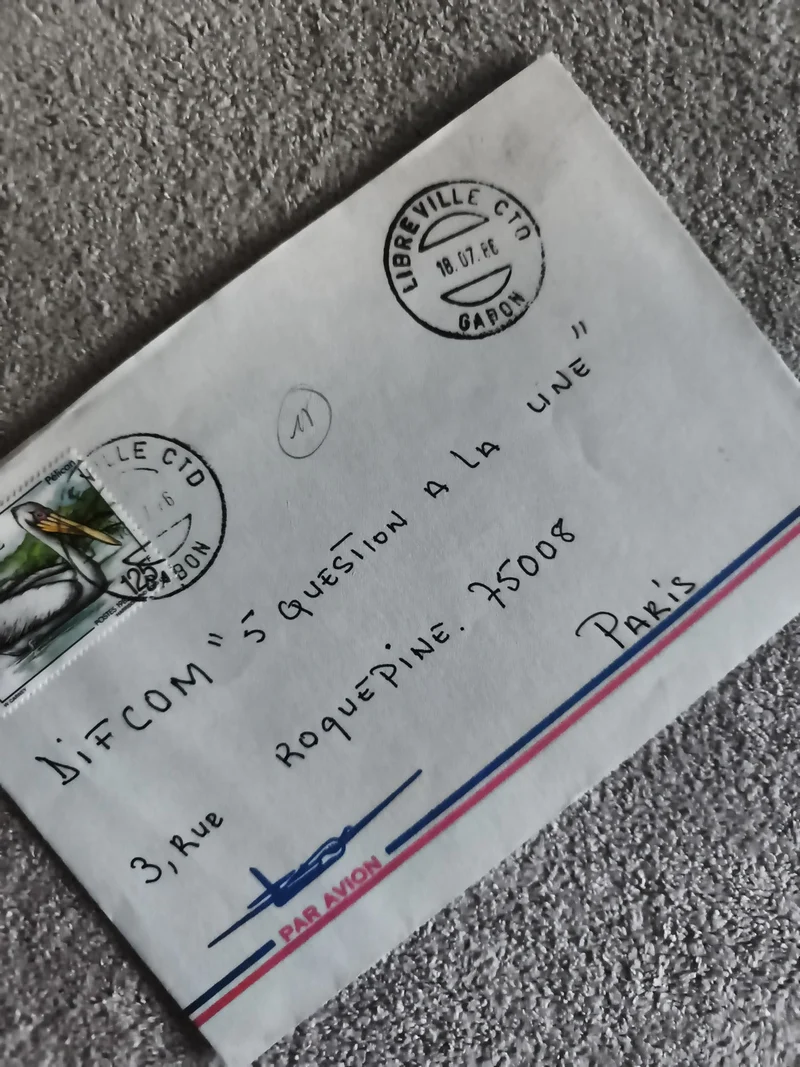 LIBREVILLE CTD
18.07.86
GABON
11
VILLE CTD
GABON
Pélican
125F
DIFCOM " 5 QUESTION A LA UNE "
3, RUE ROQUEPINE. 75008
PARIS
PAR AVION